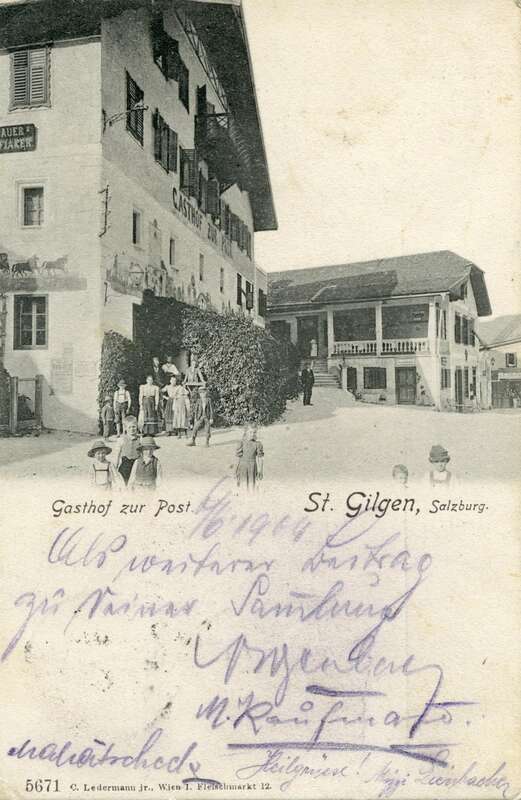 AUER
FIAKER
GASTHOF ZUR
Gasthof zur Post.
St. Gilgen, Salzburg.
1904
Als weiterer Beitrag
zu Deiner Samlung
M. Kaufmann.
Heilgrüsse!
5671 C. Ledermann jr., Wien I. Fleischmarkt 12.